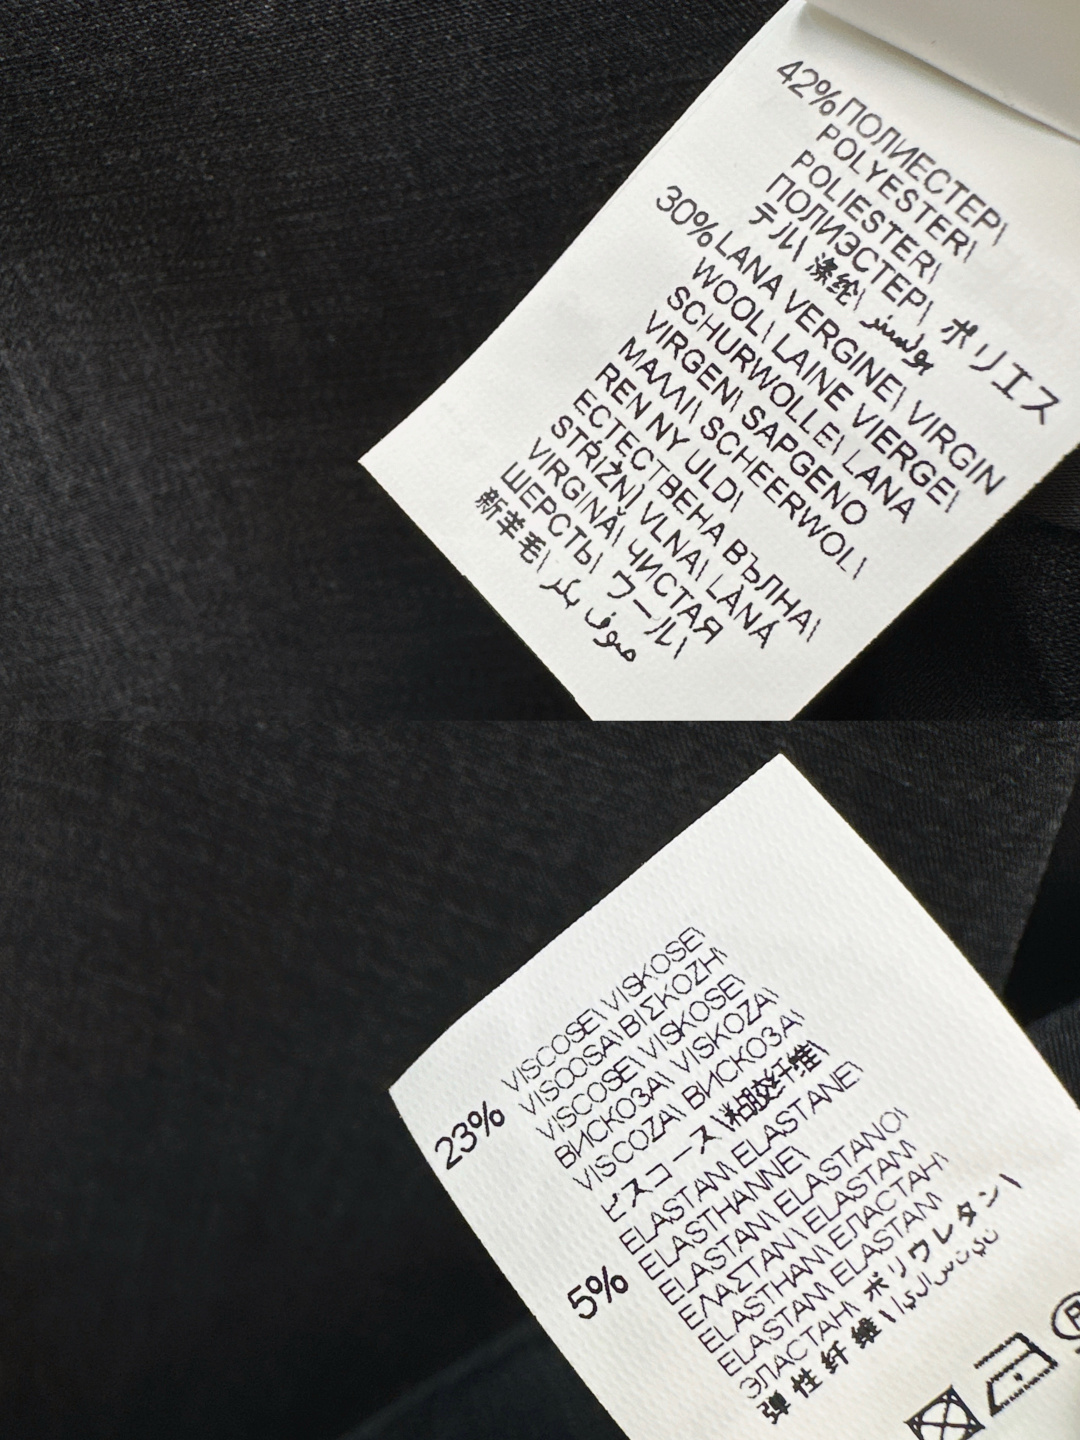 42% ПОЛИЕСТЕР\
POLYESTER\
POLIESTER\
ПОЛИЭСТЕР\ ポリエス
テル\ 涤纶\ بوليستر
30% LANA VERGINE\ VIRGIN
WOOL\ LAINE VIERGE\
SCHURWOLLE\ LANA
VIRGEN\ SAPGENO
ΜΑΛΛΙ\ SCHEERWOL\
REN NY ULD\
ЕСТЕСТВЕНА ВЪЛНА\
STŘIŽNÍ VLNA\ LÀNA
VIRGINĂ\ ЧИСТАЯ
ШЕРСТЬ\ ウール\
新羊毛\ صوف بكر
23% VISCOSE\ VISKOSE\
VISCOSA\ ΒΙΣΚΟΖΗ\
VISCOSE\ VISKOSE\
ВИСКОЗА\ VISKOZA\
VISCOZA\ ВИСКОЗА\
ビスコース \粘胶纤维\
5% ELASTAN\ ELASTANE\
ELASTHANNE\
ELASTAN\ ELASTANO\
ΕΛΑΣΤΑΝ\ ELASTAN\
ELASTHAN\ ЕЛАСТАН\
ELASTAN\ ELASTAN\
ЭЛАСТАН\ ポリウレタン\
弾性纤维\